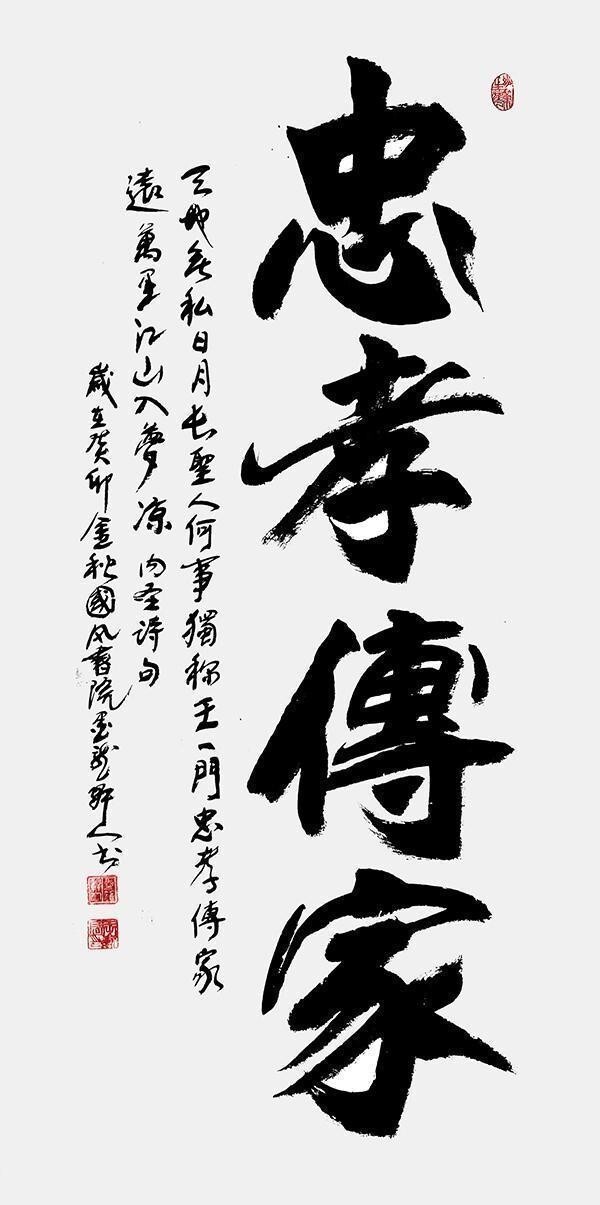 忠孝傳家
天地無私日月長聖人何事獨稱王一門忠孝傳家
遠萬里江山入夢凉 内圣詩句
歲在癸卯金秋國風書院墨龙軒人书